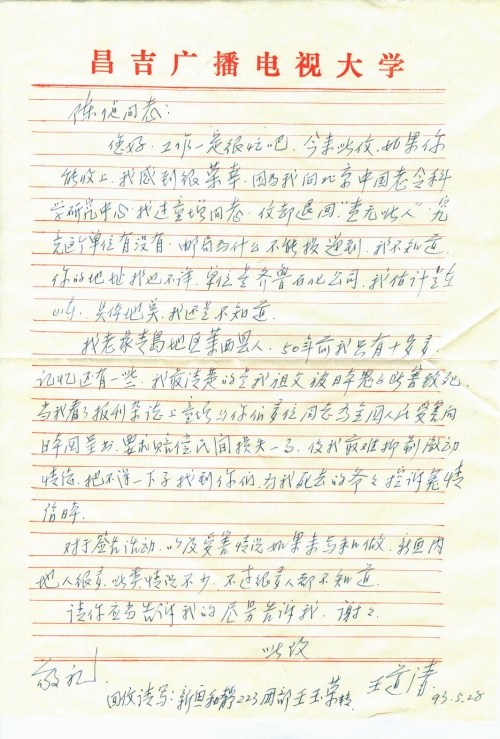 昌吉广播电视大学
陈健同志：
您好，工作一定很忙吧，今来此信，如果你
能收上，我感到很荣幸，因为我向北京中国老龄科
学研究中心 我 童增同志，信却退回"查无此人"，究
竟这个单位有没有，邮局为什么不能投递到，我不知道，
你的地址我也不详，单位是齐鲁石化公司，我估计是在
山东，具体地点，我还是不知道，
我老家青岛地区莱西县人，50年前我只有十多岁，
记忆还有一些，我最清楚的是我祖父被日本 害致死，
当我看了报刊杂志上童增与你们多位同志为全国人民受害向
日本国 书，要求赔偿民间损失一事，使我最难抑制激动
情绪，把不得一下子找到你们，为我死去的爷爷控诉冤情
日本。
对于签名活动，以及受害情况如果来与我做，新疆内
地人很多，此类情况不少，不过很多人都不知道，
请你应当告诉我的尽量告诉我，谢谢
此致
敬礼
王道清
回收请写：新疆和静223团部王玉荣转
93.5.28